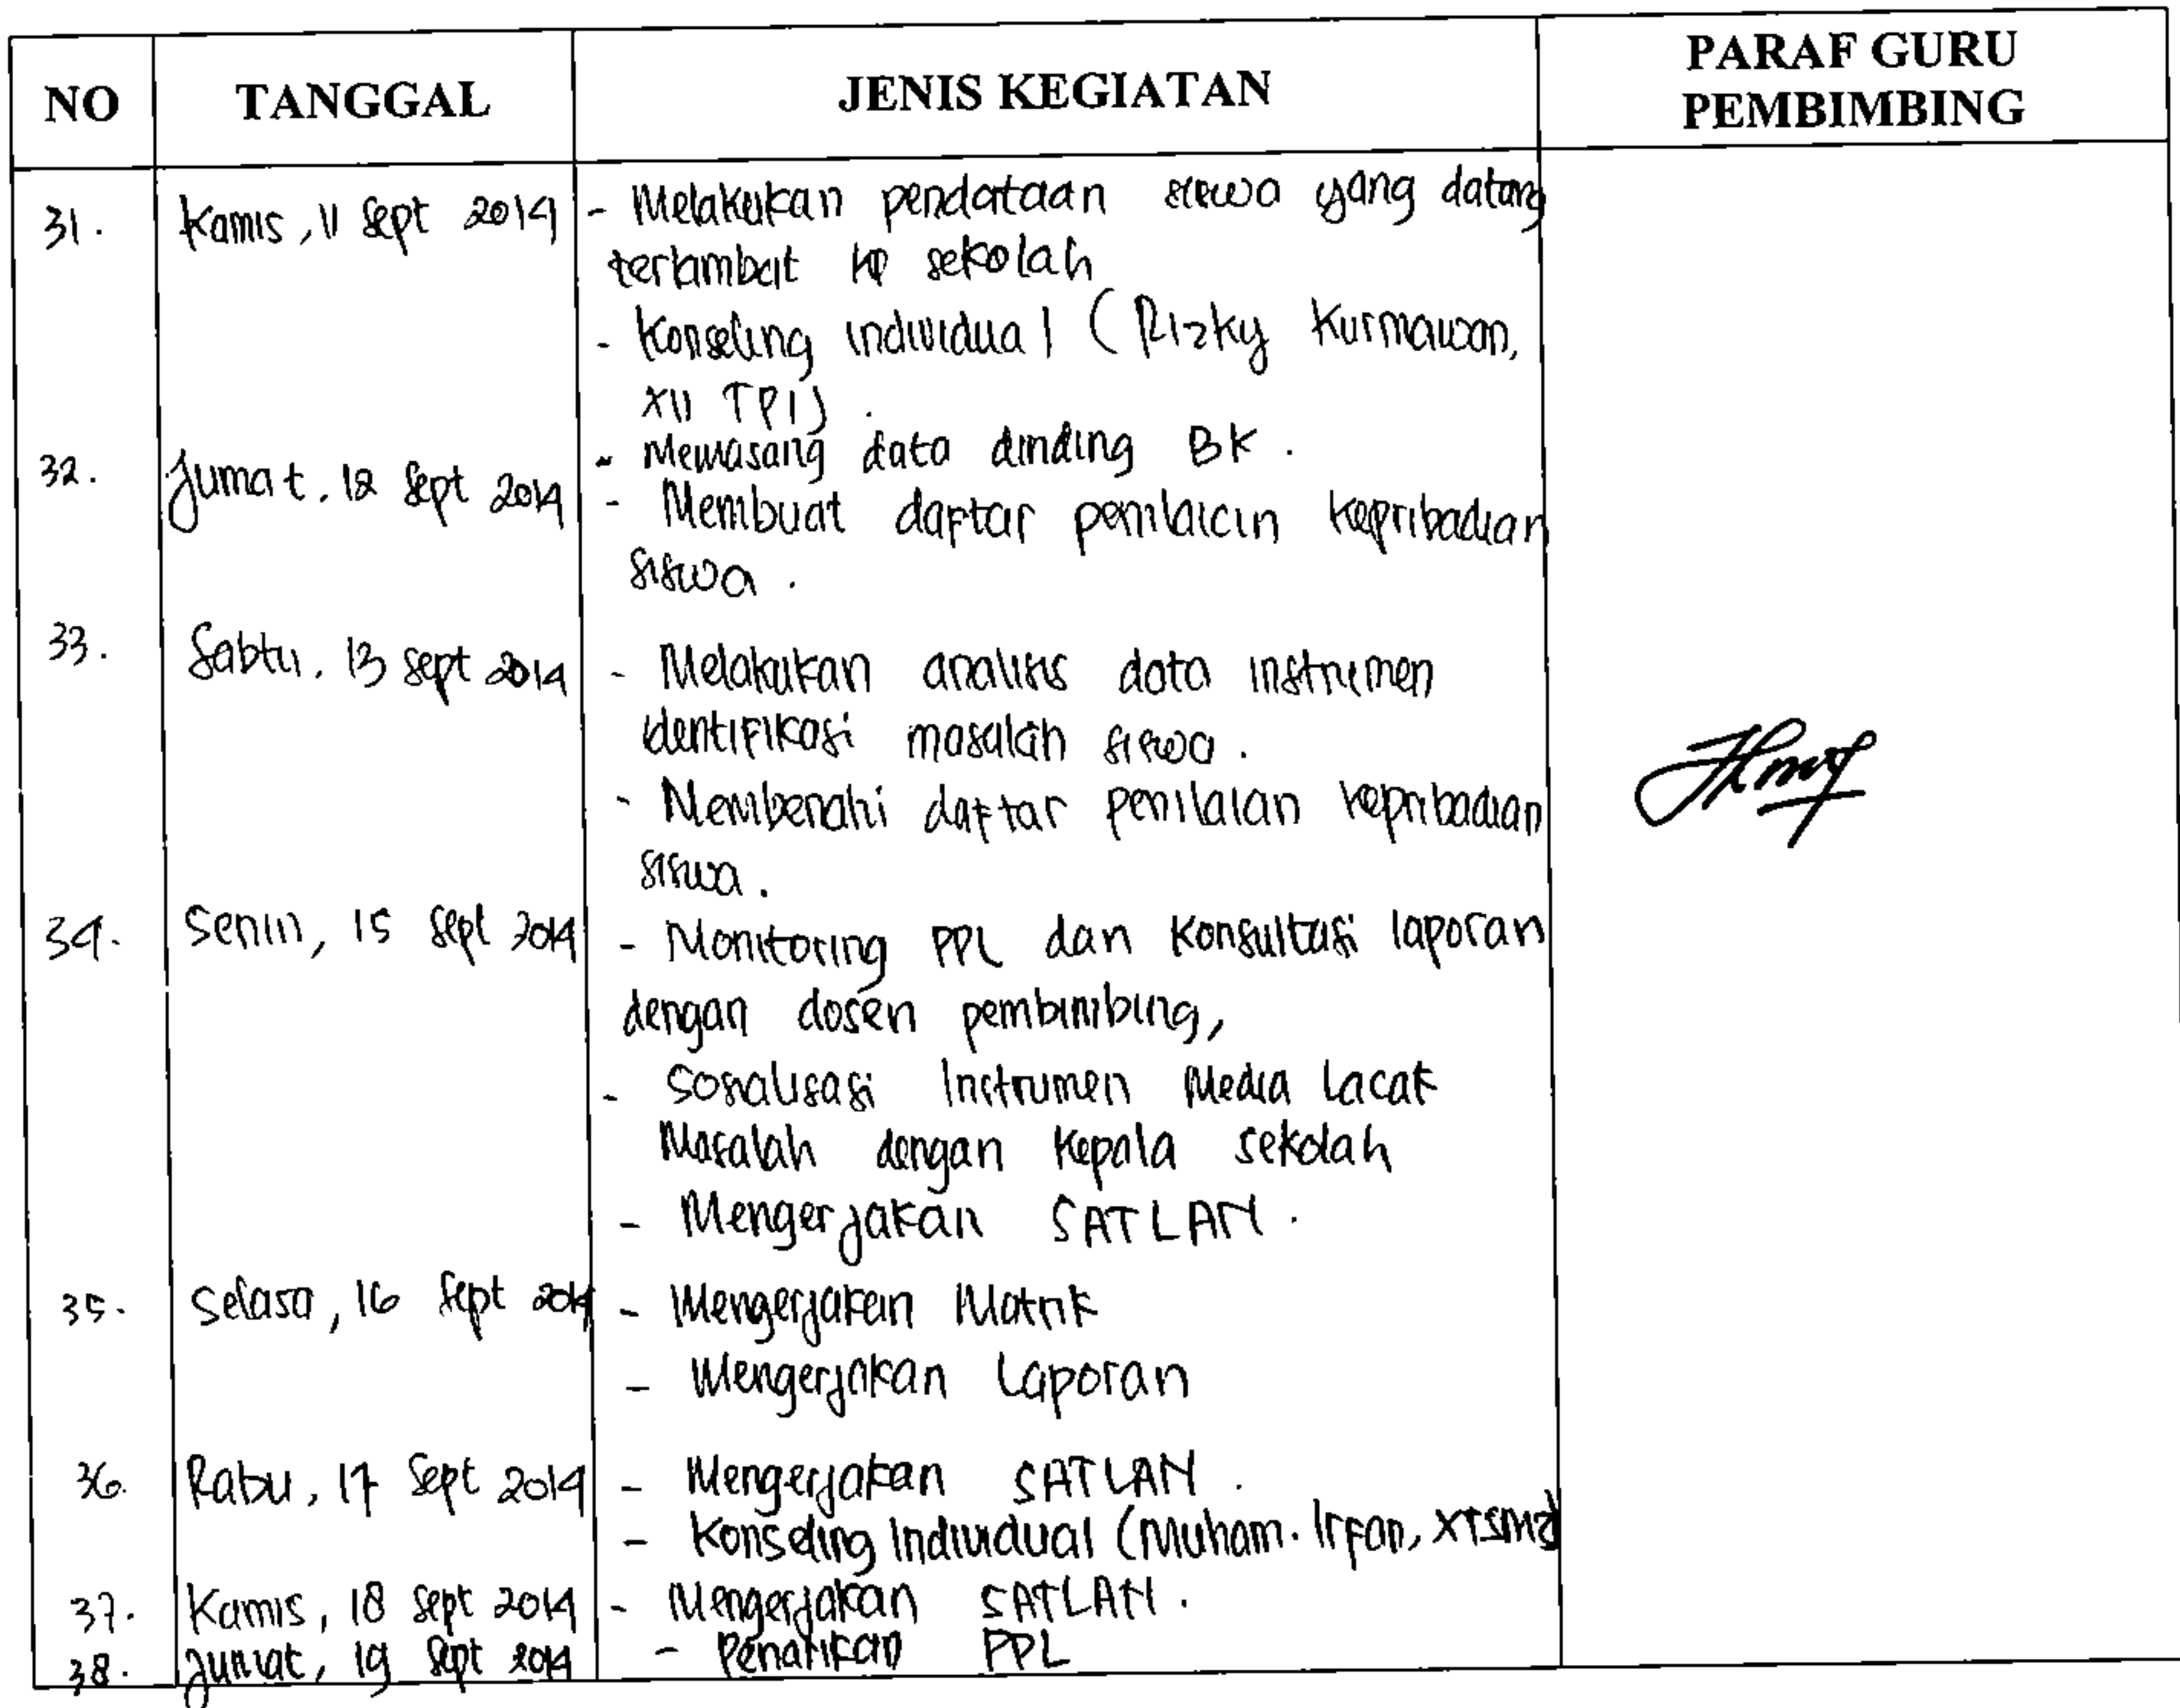 NO TANGGAL JENIS KEGIATAN PARAF GURU PEMBIMBING
31. Kamis, 11 Sept 2014 - Melakukan pendataan siswa yang datang
terlambat ke sekolah
- Konseling individual (Rizky Kurniawan,
XII TP1).
32. Jumat, 12 Sept 2014 - Memasang data dinding BK.
- Membuat daftar penilaian kepribadian
siswa.
33. Sabtu, 13 Sept 2014 - Melakukan analisis data instrumen
identifikasi masalah siswa.
- Membenahi daftar penilaian kepribadian
siswa.
34. Senin, 15 Sept 2014 - Monitoring PPL dan Konsultasi laporan
dengan dosen pembimbing,
- Sosialisasi Instrumen Media Lacak
Masalah dengan Kepala sekolah
- Mengerjakan SATLAN.
35. Selasa, 16 Sept 2014 - Mengerjakan Matrik
- Mengerjakan Laporan
36. Rabu, 17 Sept 2014 - Mengerjakan SATLAN.
- Konseling Individual (Muham. Irfan,
37. Kamis, 18 Sept 2014 - Mengerjakan SATLAN.
38. Jumat, 19 Sept 2014 - Penarikan PPL